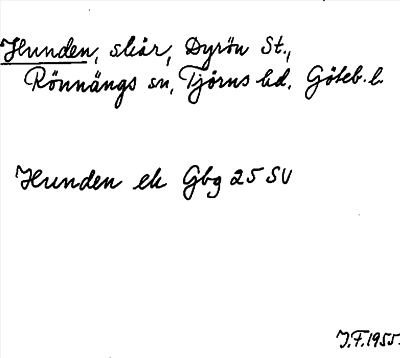 Hunden, skär, Dyrön St.,
Rönnängs sn, Tjörns hd. Göteb. l.
Hunden ek Gbg 25 SV
J.F. 1955.